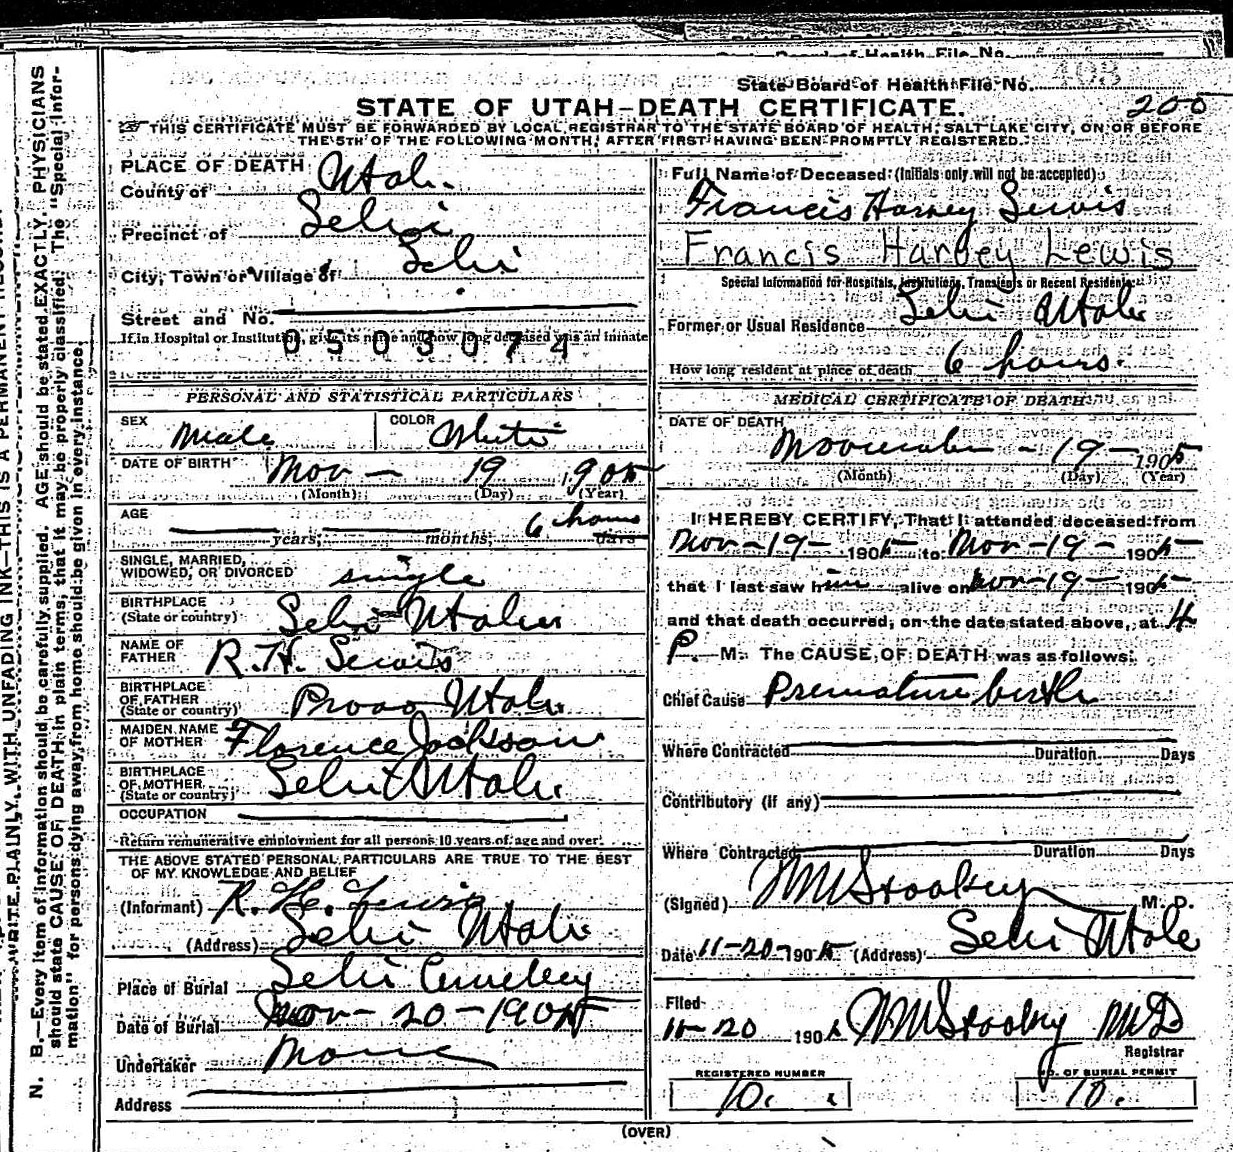 State Board of Health File No. 403
STATE OF UTAH—DEATH CERTIFICATE. 200
THIS CERTIFICATE MUST BE FORWARDED BY LOCAL REGISTRAR TO THE STATE BOARD OF HEALTH, SALT LAKE CITY, ON OR BEFORE
THE 5TH OF THE FOLLOWING MONTH, AFTER FIRST HAVING BEEN PROMPTLY REGISTERED.
PLACE OF DEATH
County of Utah
Precinct of Lehi
City, Town or Village of Lehi
Street and No.
If in Hospital or Institution, give its name and how long deceased was an inmate
0503074
PERSONAL AND STATISTICAL PARTICULARS
SEX Male COLOR White
DATE OF BIRTH Nov — 19 1905
(Month) (Day) (Year)
AGE years, months, 6 hours days
SINGLE, MARRIED,
WIDOWED, OR DIVORCED single
BIRTHPLACE
(State or country) Lehi Utah
NAME OF
FATHER R. H. Lewis
BIRTHPLACE
OF FATHER
(State or country) Provo Utah
MAIDEN NAME
OF MOTHER Florence Jackson
BIRTHPLACE
OF MOTHER
(State or country) Lehi Utah
OCCUPATION
Return remunerative employment for all persons 10 years of age and over.
THE ABOVE STATED PERSONAL PARTICULARS ARE TRUE TO THE BEST
OF MY KNOWLEDGE AND BELIEF
(Informant) R. H. Lewis
(Address) Lehi Utah
Place of Burial Lehi Cemetery
Date of Burial Nov - 20 - 1905
Undertaker None
Address
Full Name of Deceased (Initials only will not be accepted)
Francis Harvey Lewis
Francis Harvey Lewis
Special Information for Hospitals, Institutions, Transients or Recent Residents:
Former or Usual Residence Lehi Utah
How long resident at place of death 6 hours.
MEDICAL CERTIFICATE OF DEATH
DATE OF DEATH
November - 19 - 1905
(Month) (Day) (Year)
I HEREBY CERTIFY, That I attended deceased from
Nov - 19 - 1905 to Nov - 19 - 1905
that I last saw him alive on Nov - 19 - 1905
and that death occurred, on the date stated above, at 4
P. M. The CAUSE OF DEATH was as follows:
Chief Cause Premature birth
Where Contracted Duration Days
Contributory (if any)
Where Contracted Duration Days
(Signed) Stookey M. D.
Date 11-20-1905 (Address) Lehi Utah
Filed
11-20 1905 Stookey MD
Registrar
REGISTERED NUMBER
10.
NO. OF BURIAL PERMIT
10.
(OVER)
N. B.—Every item of information should be carefully supplied. AGE should be stated EXACTLY. PHYSICIANS
should state CAUSE OF DEATH in plain terms, that it may be properly classified. The "Special Infor-
mation" for persons dying away from home should be given in every instance.
WRITE PLAINLY, WITH UNFADING INK—THIS IS A PERMANENT RECORD